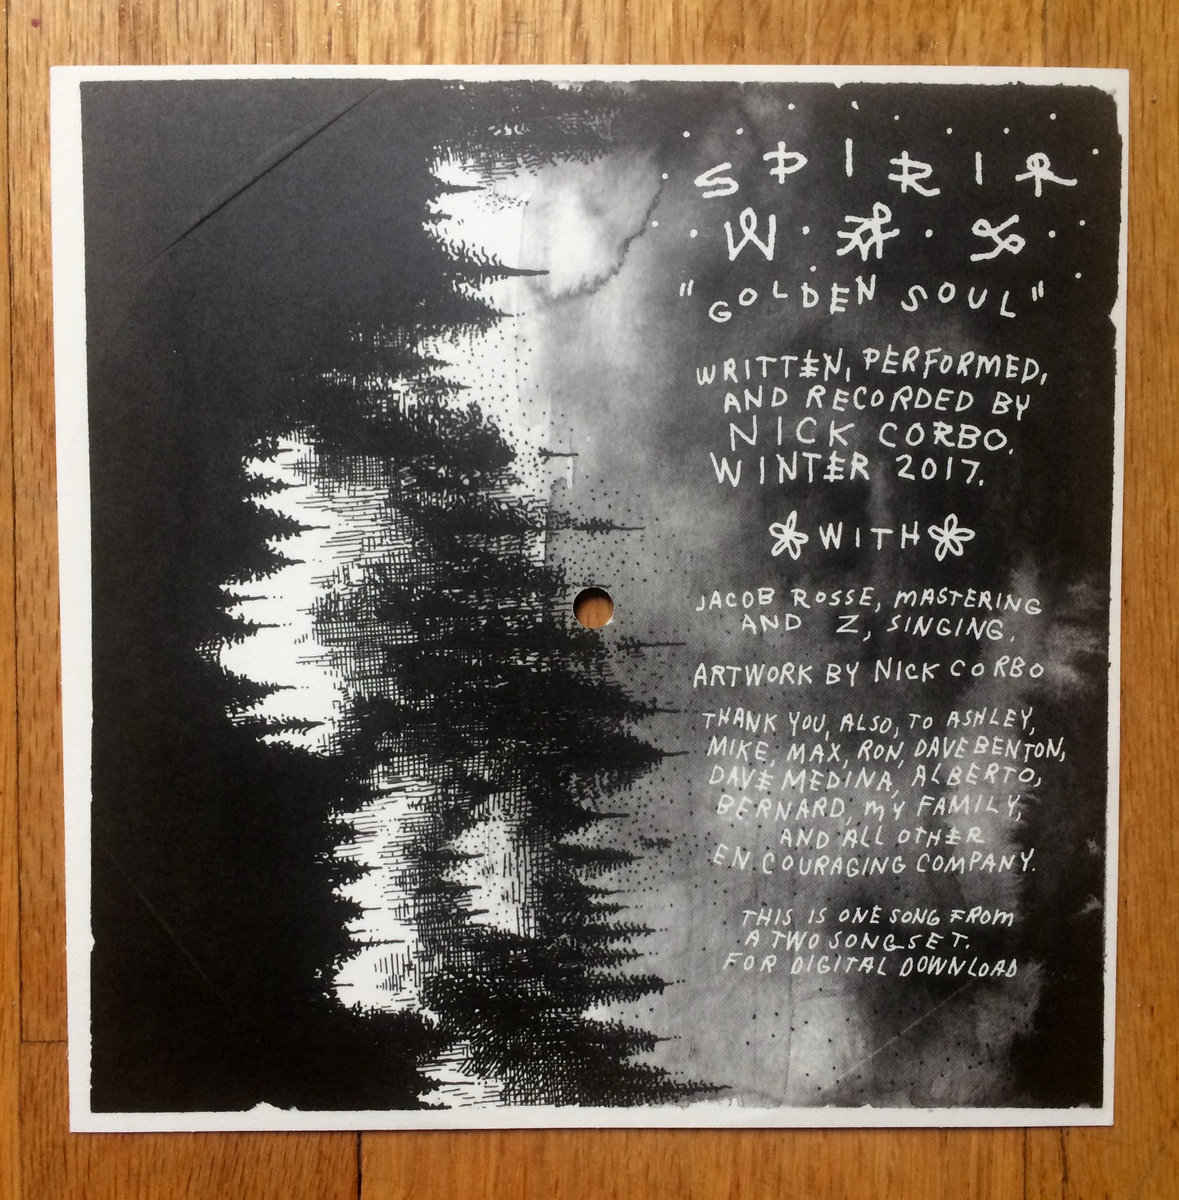 SPIRIT
WAS
"GOLDEN SOUL"
WRITTEN, PERFORMED,
AND RECORDED BY
NICK CORBO.
WINTER 2017.
WITH
JACOB ROSSE, MASTERING
AND Z, SINGING.
ARTWORK BY NICK CORBO
THANK YOU, ALSO, TO ASHLEY,
MIKE, MAX, RON, DAVE BENTON,
DAVE MEDINA, ALBERTO,
BERNARD, MY FAMILY,
AND ALL OTHER
ENCOURAGING COMPANY.
THIS IS ONE SONG FROM
A TWO SONG SET.
FOR DIGITAL DOWNLOAD